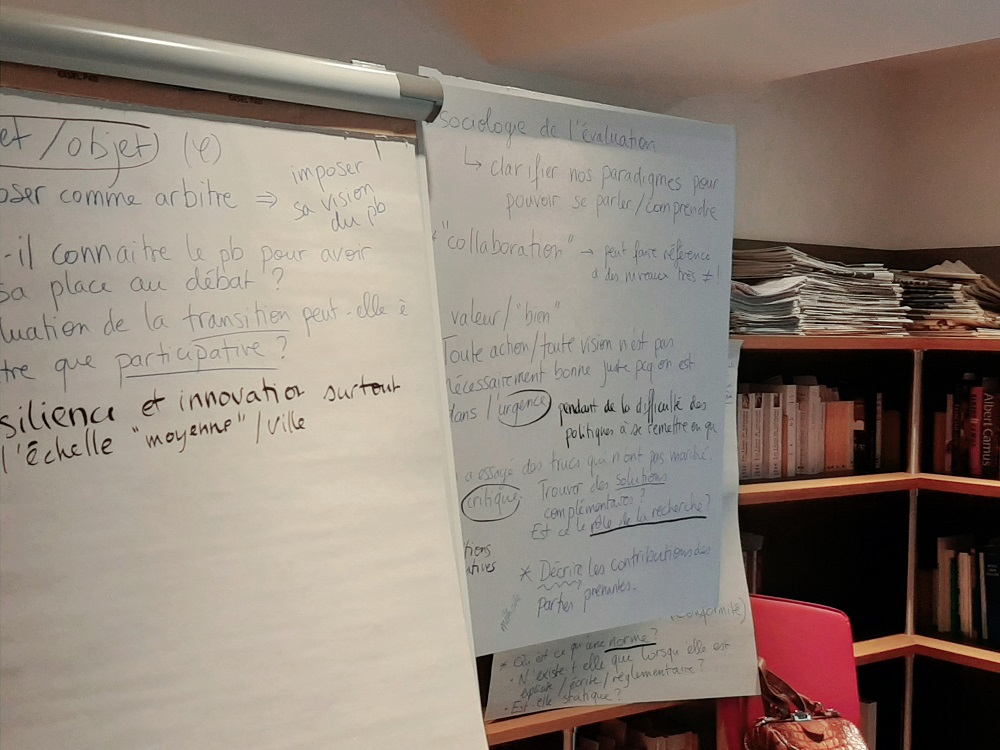 et/objet) (φ)
oser comme arbitre ⇒ imposer
sa vision
du pb
-il connaitre le pb pour avoir
sa place au débat ?
luation de la transition peut-elle ê
tre que participative ?
silience et innovation surtout
l'échelle "moyenne" / ville
sociologie de l'évaluation
↳ clarifier nos paradigmes pour
pouvoir se parler/comprendre
"collaboration" → peut faire référence
à des niveaux très ≠ !
valeur/"bien"
Toute action/toute vision n'est pas
nécessairement bonne juste pcq on est
dans l'urgence pendant de la difficulté des
politiques à se remettre en qu
a essayé des trucs qui n'ont pas marché.
critique. Trouver des solutions
complémentaires ?
Est ce le rôle de la recherche ?
tions
atives
* Décrire les contributions des
parties prenantes.
conformité)
* Qu'est ce qu'une norme ?
• N'existe t elle que lorsqu'elle est
/écrite/réglementaire ?
• Est-elle statique ?
Albert Camus